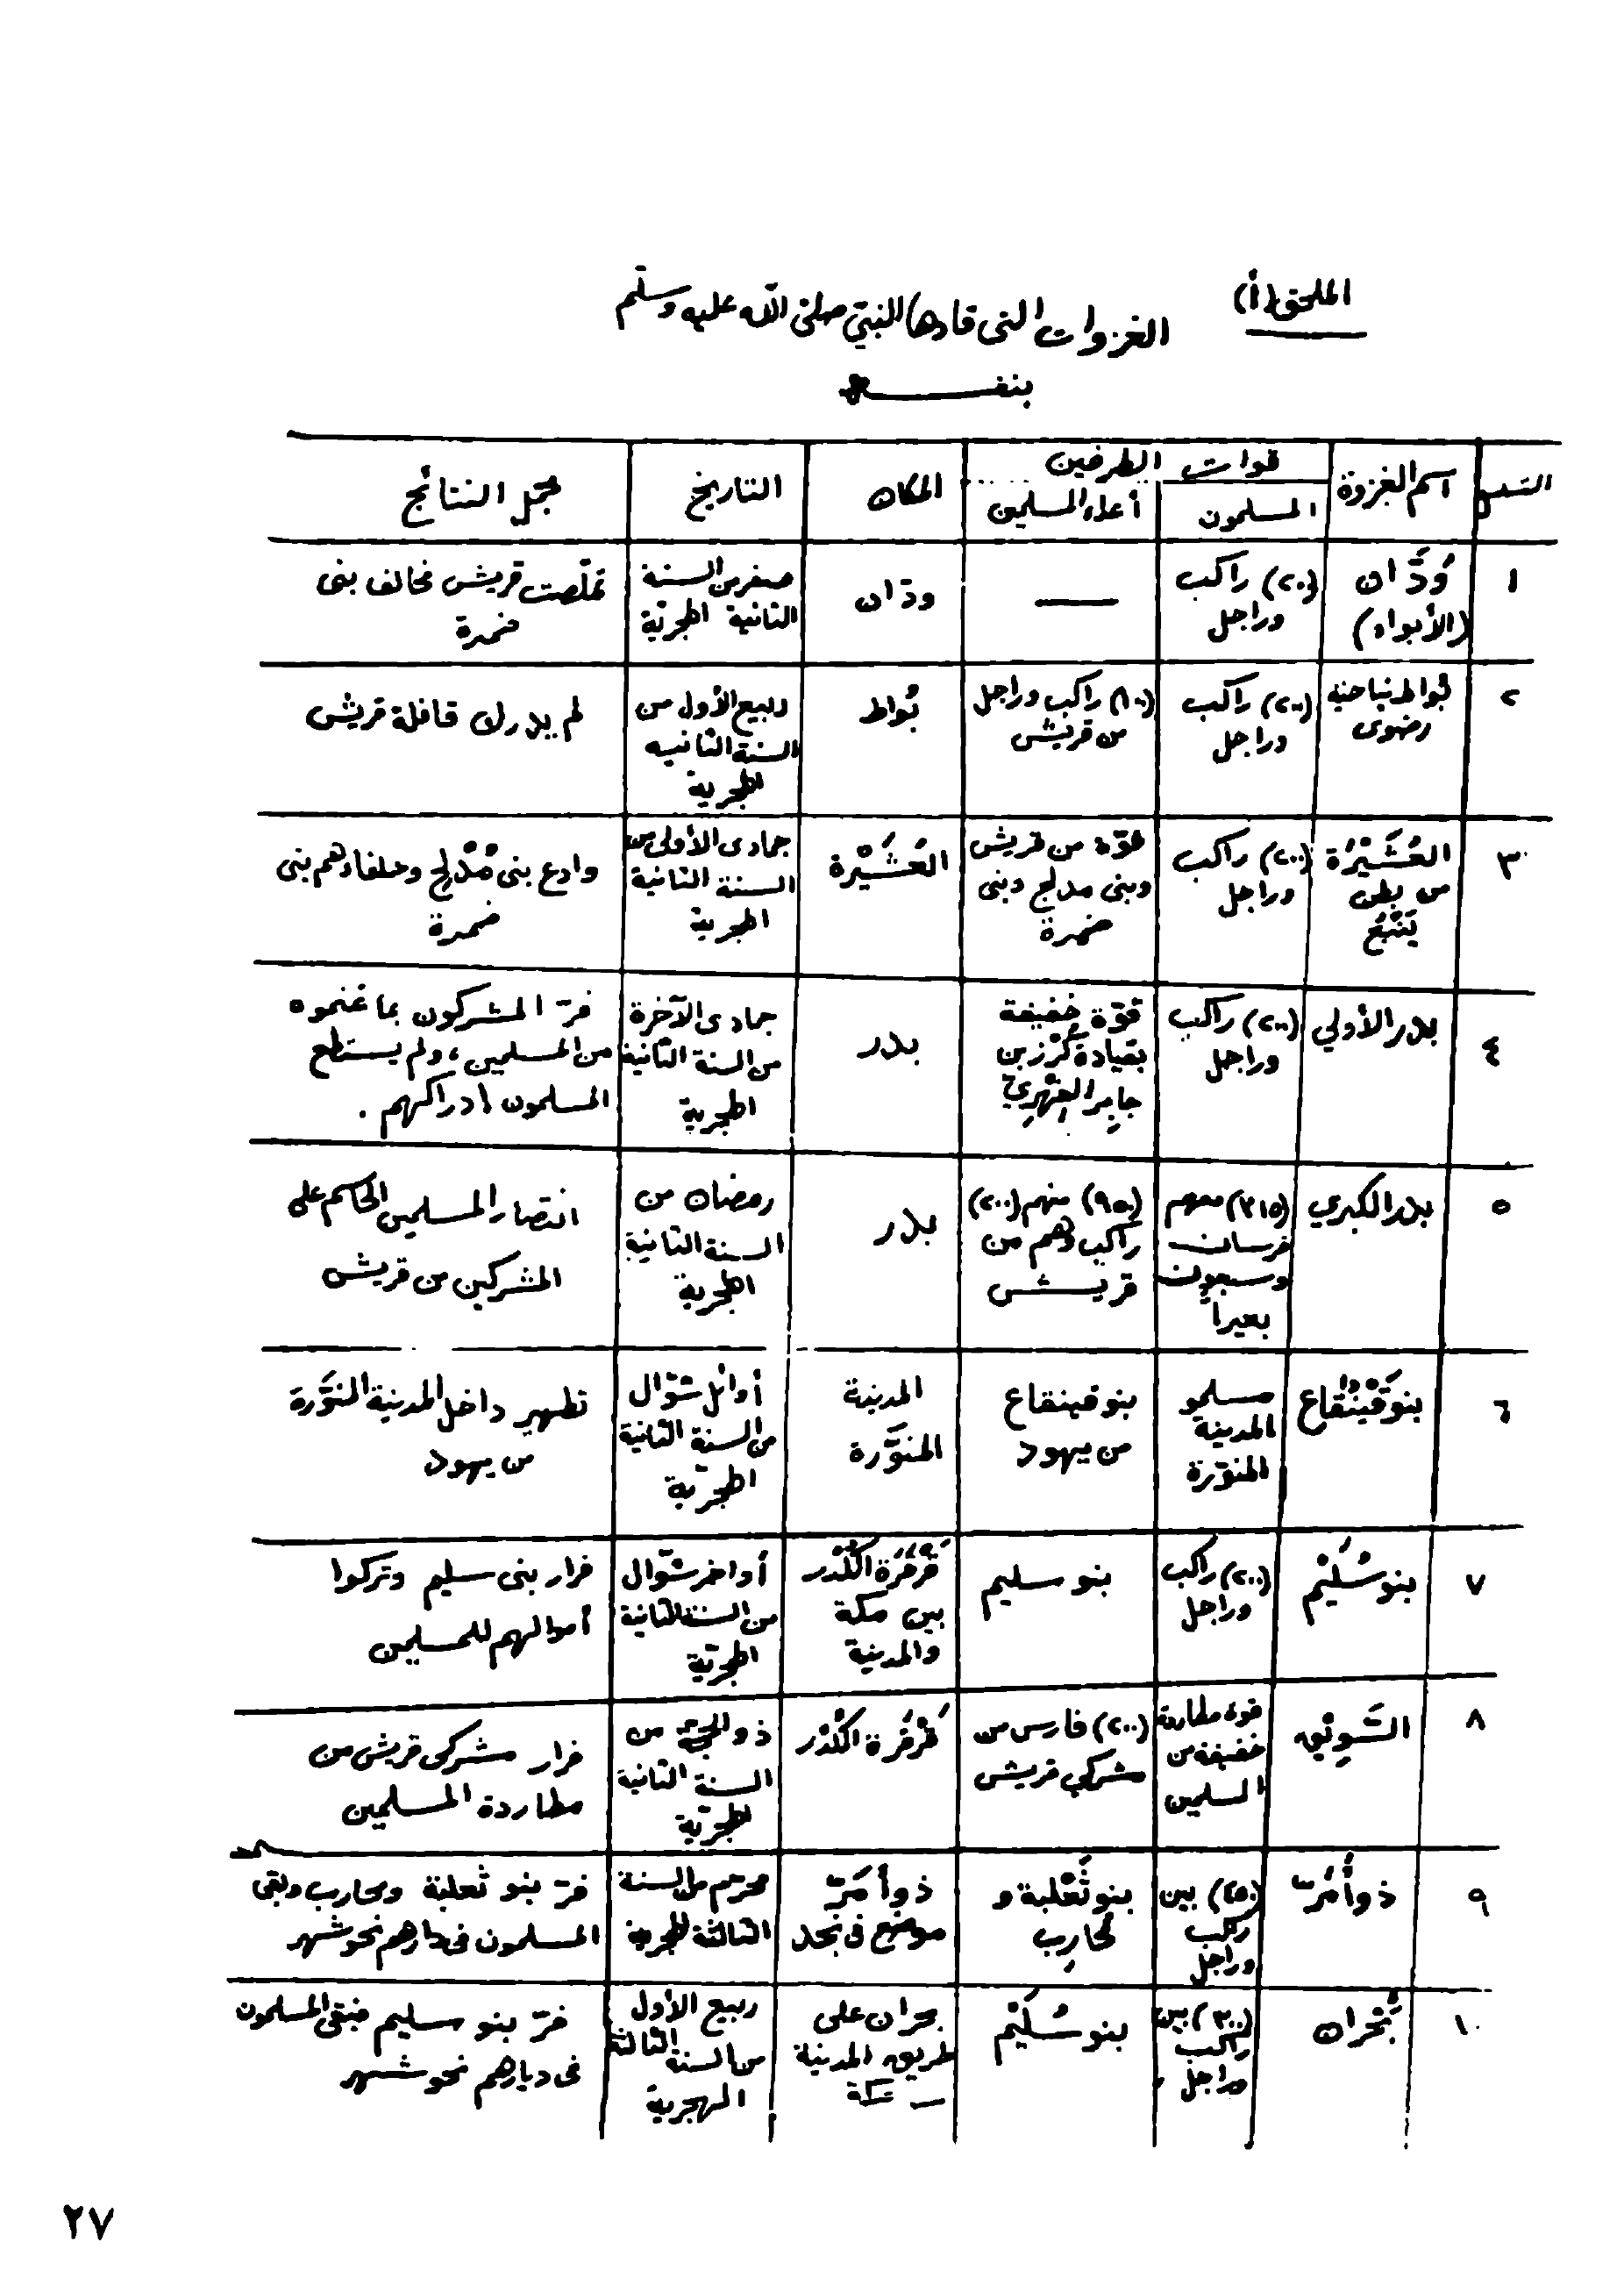 الملحق (أ)
الغزوات التى قادها النبىّ صلى اللّه عليه وسلّم
بنفسه
التسلسل
اسم الغزوة
قوات الطرفين
المسلمون
أعداء المسلمين
المكان
التاريخ
مجمل النتائج
١
وُدَّان
(الأبواء)
(٢٠٠) راكب
وراجل
—
ودّان
صفر من السنة
الثانية الهجريّة
تملّصت قريش فحالف بنى
ضمرة
٢
بُواط بناحية
رضوى
(٢٠٠) راكب
وراجل
(١٠٠) راكب وراجل
من قريش
بُواط
ربيع الأول من
السنة الثانيه
الهجرية
لم يدرك قافلة قريش
٣
العُشَيْرَة
من بطن
يَنْبُع
(٢٠٠) راكب
وراجل
قوّة من قريش
وبنى مدلج وبنى
ضمرة
العُشَيْرة
جمادى الأولى من
السنة الثانية
الهجرية
وادع بنى مُدْلِج وحلفاءهم بنى
ضمرة
٤
بدر الأولي
(٢٠٠) راكب
وراجل
قوّة خفيفة
بقيادة كُرْز بن
جابِر الفِهْرِيّ
بدر
جمادى الآخرة
من السنة الثانية
الهجرية
فرّ المشركون بما غنموه
من المسلمين، ولم يستطع
المسلمون ادراكهم.
٥
بدر الكبري
(٣١٥) معهم
فرسان
وسبعون
بعيراً
(٩٥٠) منهم (٢٠٠)
راكب وهم من
قريش
بدر
رمضان من
السنة الثانية
الهجرية
انتصار المسلمين الحاسم على
المشركين من قريش
٦
بنو قَيْنُقاع
مسلمو
المدينة
المنوّرة
بنو قينقاع
من يهود
المدينة
المنوَّرة
أوائل شوّال
من السنة الثانية
الهجريّة
تطهير داخل المدينة المنوَّرة
من يهود
٧
بنو سُلَيْم
(٢٠٠) راكب
وراجل
بنو سليم
قَرْقَرَة الكُدْر
بين مكة
والمدينة
أواخر شوّال
من السنة الثانية
الهجريّة
فرار بنى سليم وتركوا
أموالهم للمسلمين
٨
السَّوِيْق
قوة مطاردة
خفيفة من
المسلمين
(٢٠٠) فارس من
مشركي قريش
قَرْقَرة الكُدْر
ذو الحجّة من
السنة الثانية
الهجريّة
فرار مشركى قريش من
مطاردة المسلمين
٩
ذو أَمَرّ
(٤٥٠) بين
راكب
وراجل
بنو ثَعْلبة و
مُحارِب
ذو أَمَرّ
موضع فى نجد
محرّم من السنة
الثالثة الهجرية
فرّ بنو ثعلبة ومحارب وبقى
المسلمون فى ديارهم نحو شهر
١٠
بُحْران
(٣٠٠) بين
راكب
وراجل
بنو سُلَيْم
بحران على
طريق المدينة
ـ مكة
ربيع الأول
من السنة الثالثة
الهجرية
فرّ بنو سليم فبقى المسلمون
فى ديارهم نحو شهر
٢٧